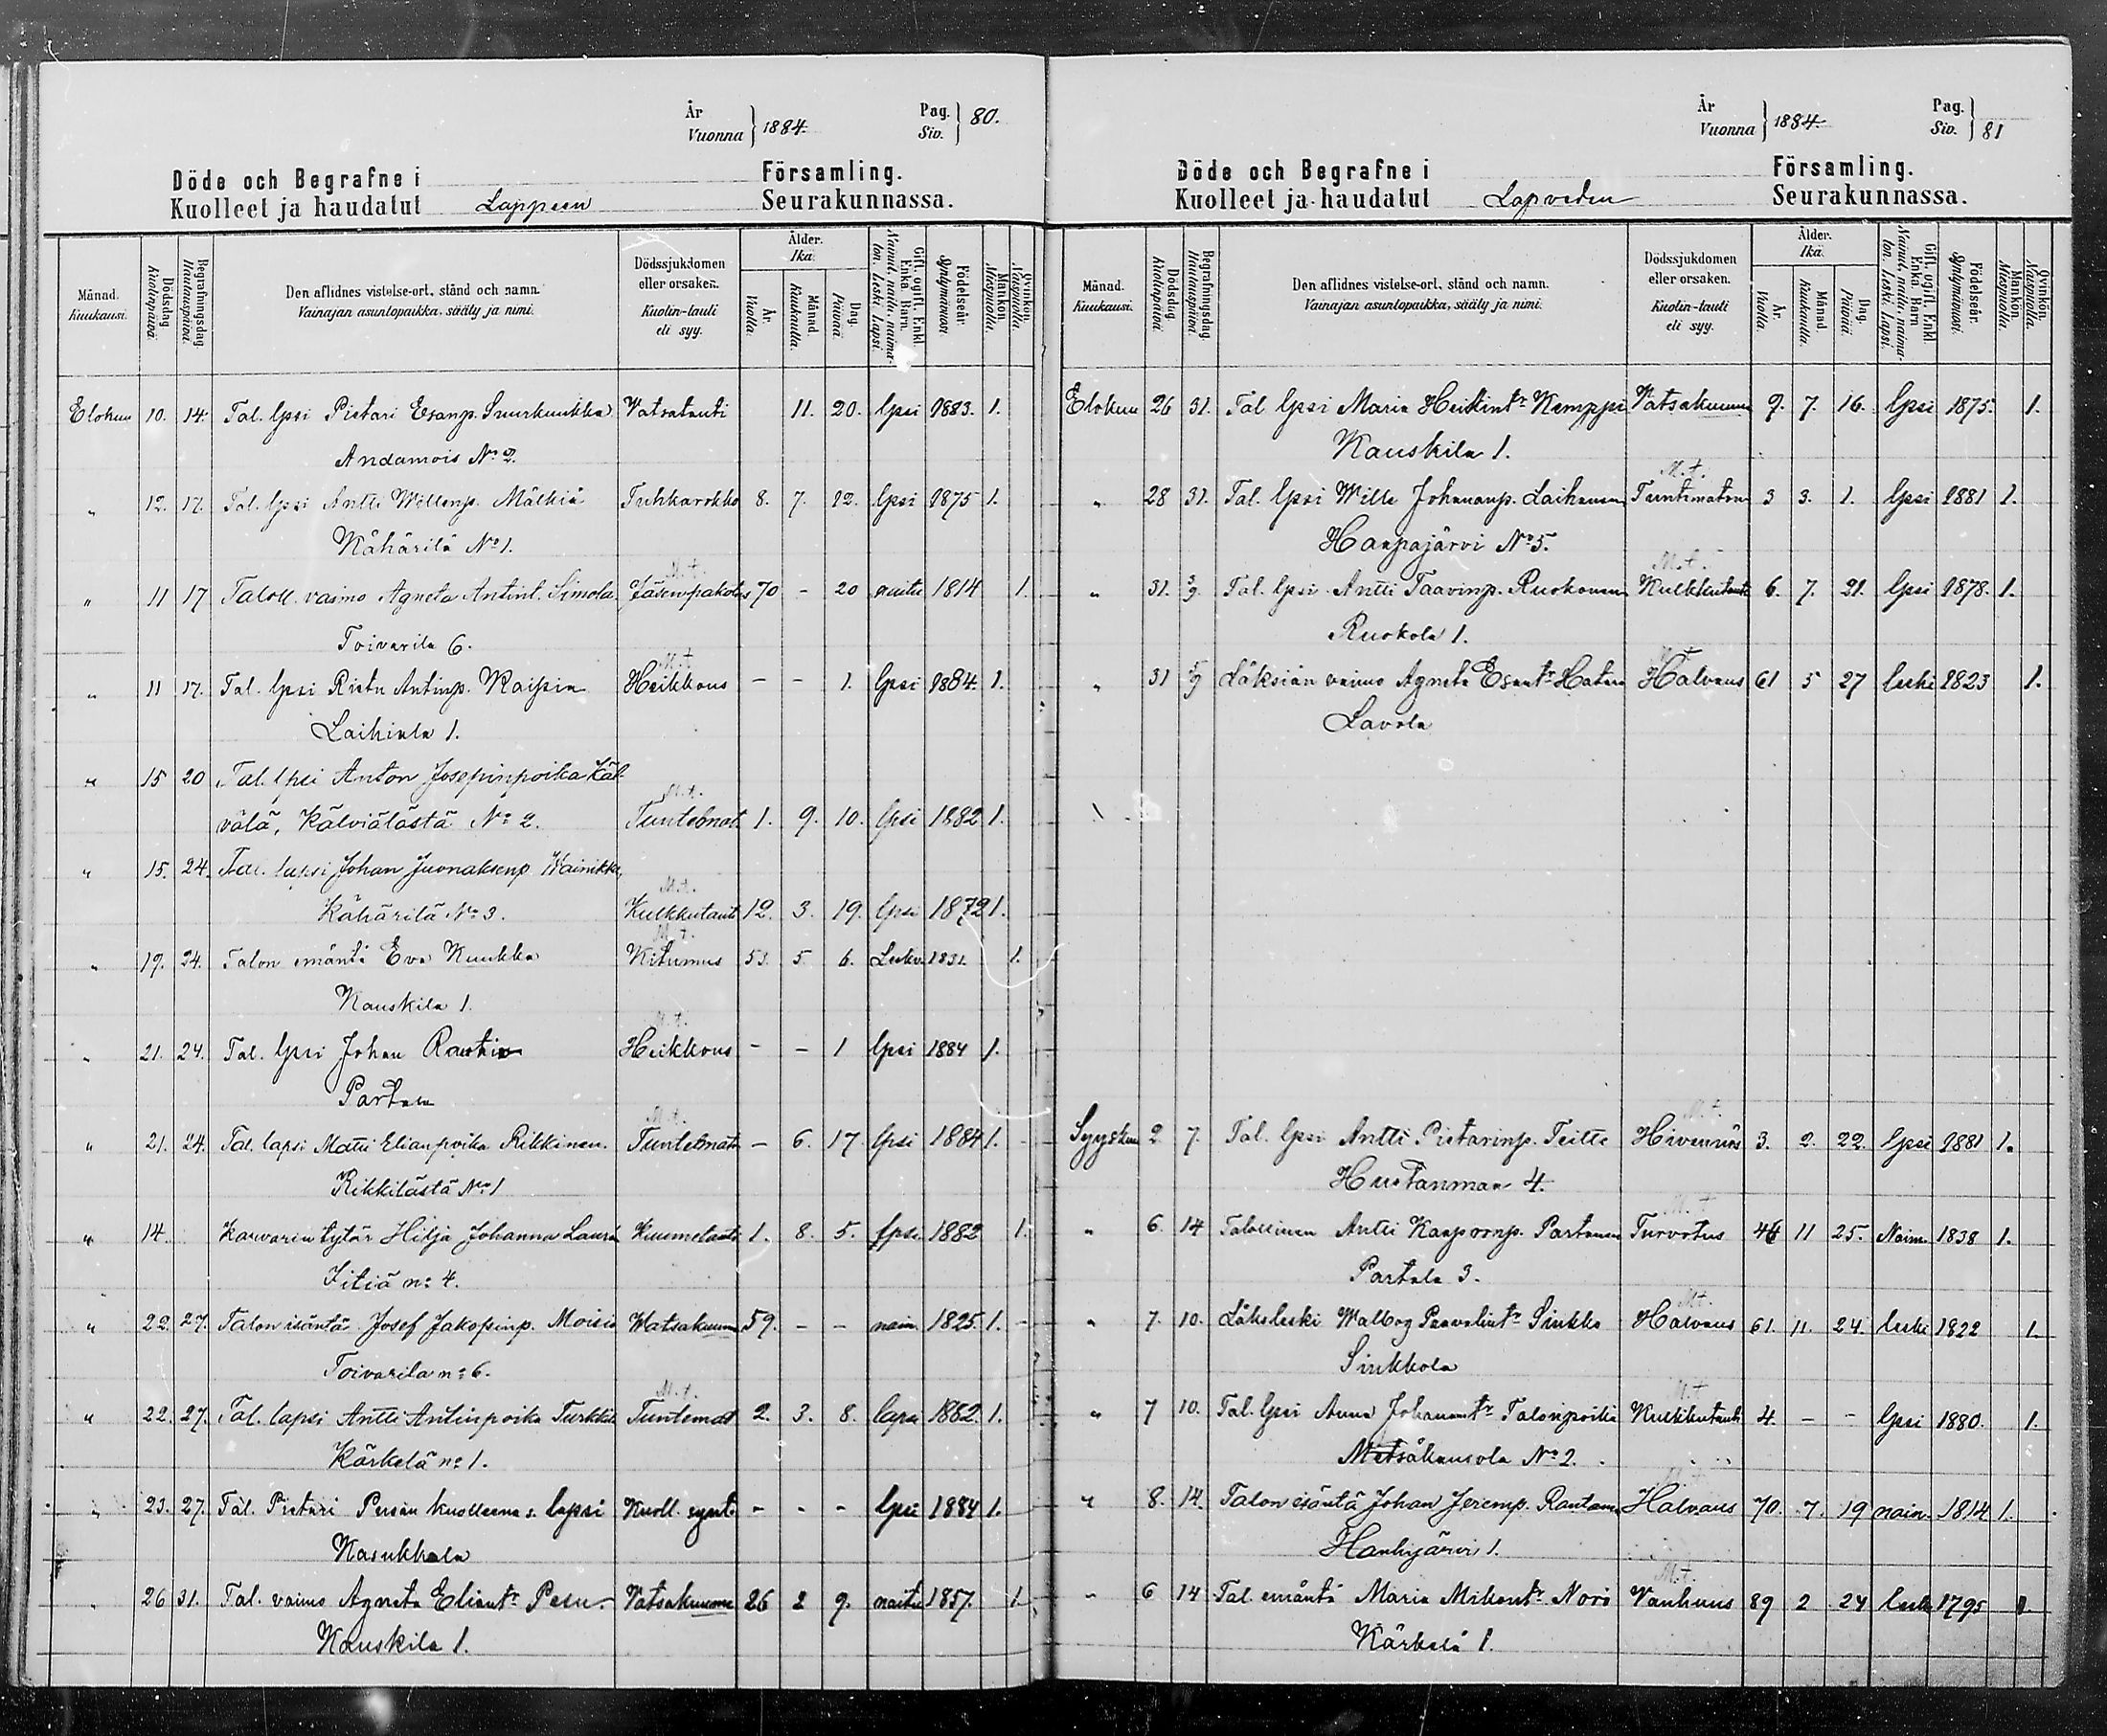 År
Vuonna } 1884. Pag.
Siv. } 80.
Döde och Begrafne i Församling.
Kuolleet ja haudatut Lappeen Seurakunnassa.
Månad. Kuukausi. Dödsdag Kuolinpäivä. Begrafningsdag Hautauspäivä. Den aflidnes vistelse-ort, stånd och namn. Vainajan asuntopaikka, sääty ja nimi. Dödssjukdomen eller orsaken. Kuolin-tauti eli syy. Ålder. Ikä. År. Vuotta. Månad. Kuukautta. Dag. Päivää. Gift, ogift, Enkl. Enka, Barn. Nainut, naitu, naimaton, Leski, Lapsi. Födelseår. Syntymävuosi. Mankön. Miespuolia. Qvinkön. Naispuolia.
Elokuu 10. 14. Tal. lpsi Pietari Esanp. Suurkuukka Vatsatauti 11. 20. lpsi 1883. 1.
Andamois No 2.
" 12. 17. Tal. lpsi Antti Willenp. Mälkiä Tuhkarokko 8. 7. 12. lpsi 1875 1.
Kähärilä No 1.
M.t.
" 11 17 Taloll. vaimo Agneta Antint. Simola 70 - 20 naitu 1814 1.
Toivarila 6.
M.t
" 11 17. Tal. lpsi Ristu Antinp. Kaipia Heikkous - - 1. lpsi 1884. 1.
Laihiala 1.
" 15 20 Tal. lpsi Anton Josepinpoika Käl-
M.t.
välä, Kälviälästä No 2. 1. 9. 10. lpsi 1882 1.
" 15. 24. Tal. lapsi Johan Juonaksenp. Wainikka,
M.t.
Kähärilä No 3. Kulkkutaut 12. 3. 19. lpsi 1872 1.
M.t.
" 19. 24. Talon emäntä Eva Kuukka Kitumus 53. 5 6. Leski 1831. 1.
Kauskila 1.
M.t.
" 21. 24. Tal. lpsi Johan Rautia Heikkous - - 1 lpsi 1884 1.
Partala
M.t.
" 21. 24. Tal. lapsi Matti Elianpoika Rikkinen. - 6. 17 lpsi 1884 1.
Rikkilästä No 1
" 14. Karvarin tytär Hilja Johanna Kuumetauti 1. 8. 5. lpsi 1882 1.
Iitiä n: 4.
" 22. 27. Talon isäntä Josef Jakopinp. Moisio Watsakuume 59. - - nain. 1825. 1.
Toivarila n: 6.
M.t.
" 22. 27. Tal. lapsi Antti Antinpoika Turkki Tuntemat 2. 3. 8. lapsi 1882. 1.
Kärkelä n: 1.
" 23. 27. Tal. Pietari Pesän kuolleena s. lapsi Kuoll. synt. - - - lpsi 1884 1.
Kasukkala
" 26 31. Tal. vaimo Agneta Eliant:r Pesu. Vatsakuume 26 2 9. naitu 1857. 1
Kauskila 1.
År
Vuonna } 1884. Pag.
Siv. } 81
Döde och Begrafne i Församling.
Kuolleet ja haudatut Lapveden Seurakunnassa.
Månad. Kuukausi. Dödsdag. Kuolinpäivä. Begrafningsdag. Hautauspäivä. Den aflidnes vistelse-ort, stånd och namn. Vainajan asuntopaikka, sääty ja nimi. Dödssjukdomen eller orsaken. Kuolin-tauti eli syy. Ålder. Ikä. År. Vuotta. Månad. Kuukautta. Dag. Päivää. Gift, ogift, Enkl. Enka, Barn Nainut, naitu, naimaton, Leski, Lapsi. Födelseår. Syntymävuosi. Mankön. Miespuolia. Qvinkön. Naispuolia.
Elokuu 26 31. Tal lpsi Maria Heikint:r Kemppi Vatsakuume 9. 7. 16. lpsi 1875. 1.
Kauskila 1.
M.t.
" 28 31. Tal. lpsi Wille Johananp. Laihanen Tuntimaton 3 3. 1. lpsi 1881 1.
Haapajärvi No 5.
M.t.
" 31. 3/9 Tal. lpsi Antti Taavinp. Ruokonen Kulkkutauti 6. 7. 21. lpsi 1878. 1.
Ruokola 1.
" 31 5/9 Läksiän vaimo Agneta Esant:r Halvaus 61 5 27 leski 1823 1.
Lavola
M.t.
Syyskuu 2 7. Tal. lpsi Antti Pietarinp. Teitti 3. 2. 22. lpsi 1881 1.
4.
M.t
" 6. 14 Talollinen Antti Kaapornp. Partanen Turvotus 46 11 25. Naim. 1838 1.
Partala 3.
M.t.
" 7. 10. Läksleski Walbog Paavalint:r Sinkko Halvaus 61. 11. 24. leski 1822 1.
Sinkkola
M.t
" 7 10. Tal. lpsi Anna Johanant:r Talonpoika Kulkkutauti 4. - - lpsi 1880. 1.
Metsäkansola No 2.
" 8. 14. Talon isäntä Johan Jeremp. Rantanen Halvaus 70. 7. 19 nain. 1814 1.
Hanhijärvi 1.
M.t.
" 6 14 Tal emäntä Maria Mikont:r Noro Vanhuus 89 2 24 leski 1795 1.
Kärkelä 1.